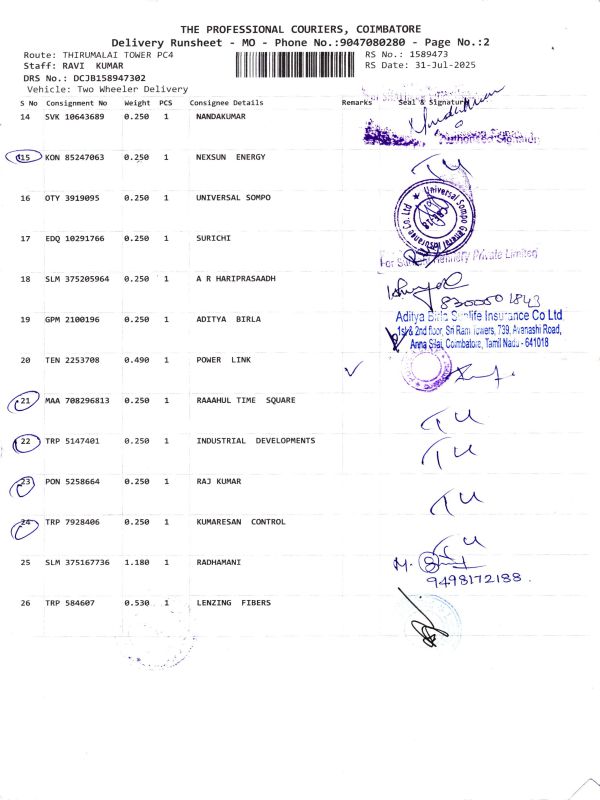 THE PROFESSIONAL COURIERS, COIMBATORE
Delivery Runsheet - MO - Phone No.:9047080280 - Page No.:2
Route: THIRUMALAI TOWER PC4 RS No.: 1589473
Staff: RAVI KUMAR RS Date: 31-Jul-2025
DRS No.: DCJB158947302
Vehicle: Two Wheeler Delivery
S No Consignment No Weight PCS Consignee Details Remarks Seal & Signature
14 SVK 10643689 0.250 1 NANDAKUMAR
15 KON 85247063 0.250 1 NEXSUN ENERGY TU
16 OTY 3919095 0.250 1 UNIVERSAL SOMPO
Universal Sompo General Insurance Co. Ltd
17 EDQ 10291766 0.250 1 SURICHI
Private Limited
18 SLM 375205964 0.250 1 A R HARIPRASAADH
8300001843
19 GPM 2100196 0.250 1 ADITYA BIRLA
Aditya Birla Sunlife Insurance Co Ltd
1st & 2nd floor, Sri Ram Towers, 739, Avanashi Road,
Anna Silai, Coimbatore, Tamil Nadu - 641018
20 TEN 2253708 0.490 1 POWER LINK
21 MAA 708296813 0.250 1 RAAAHUL TIME SQUARE TU
22 TRP 5147401 0.250 1 INDUSTRIAL DEVELOPMENTS TU
23 PON 5258664 0.250 1 RAJ KUMAR TU
24 TRP 7928406 0.250 1 KUMARESAN CONTROL TU
25 SLM 375167736 1.180 1 RADHAMANI
9498172188.
26 TRP 584607 0.530 1 LENZING FIBERS